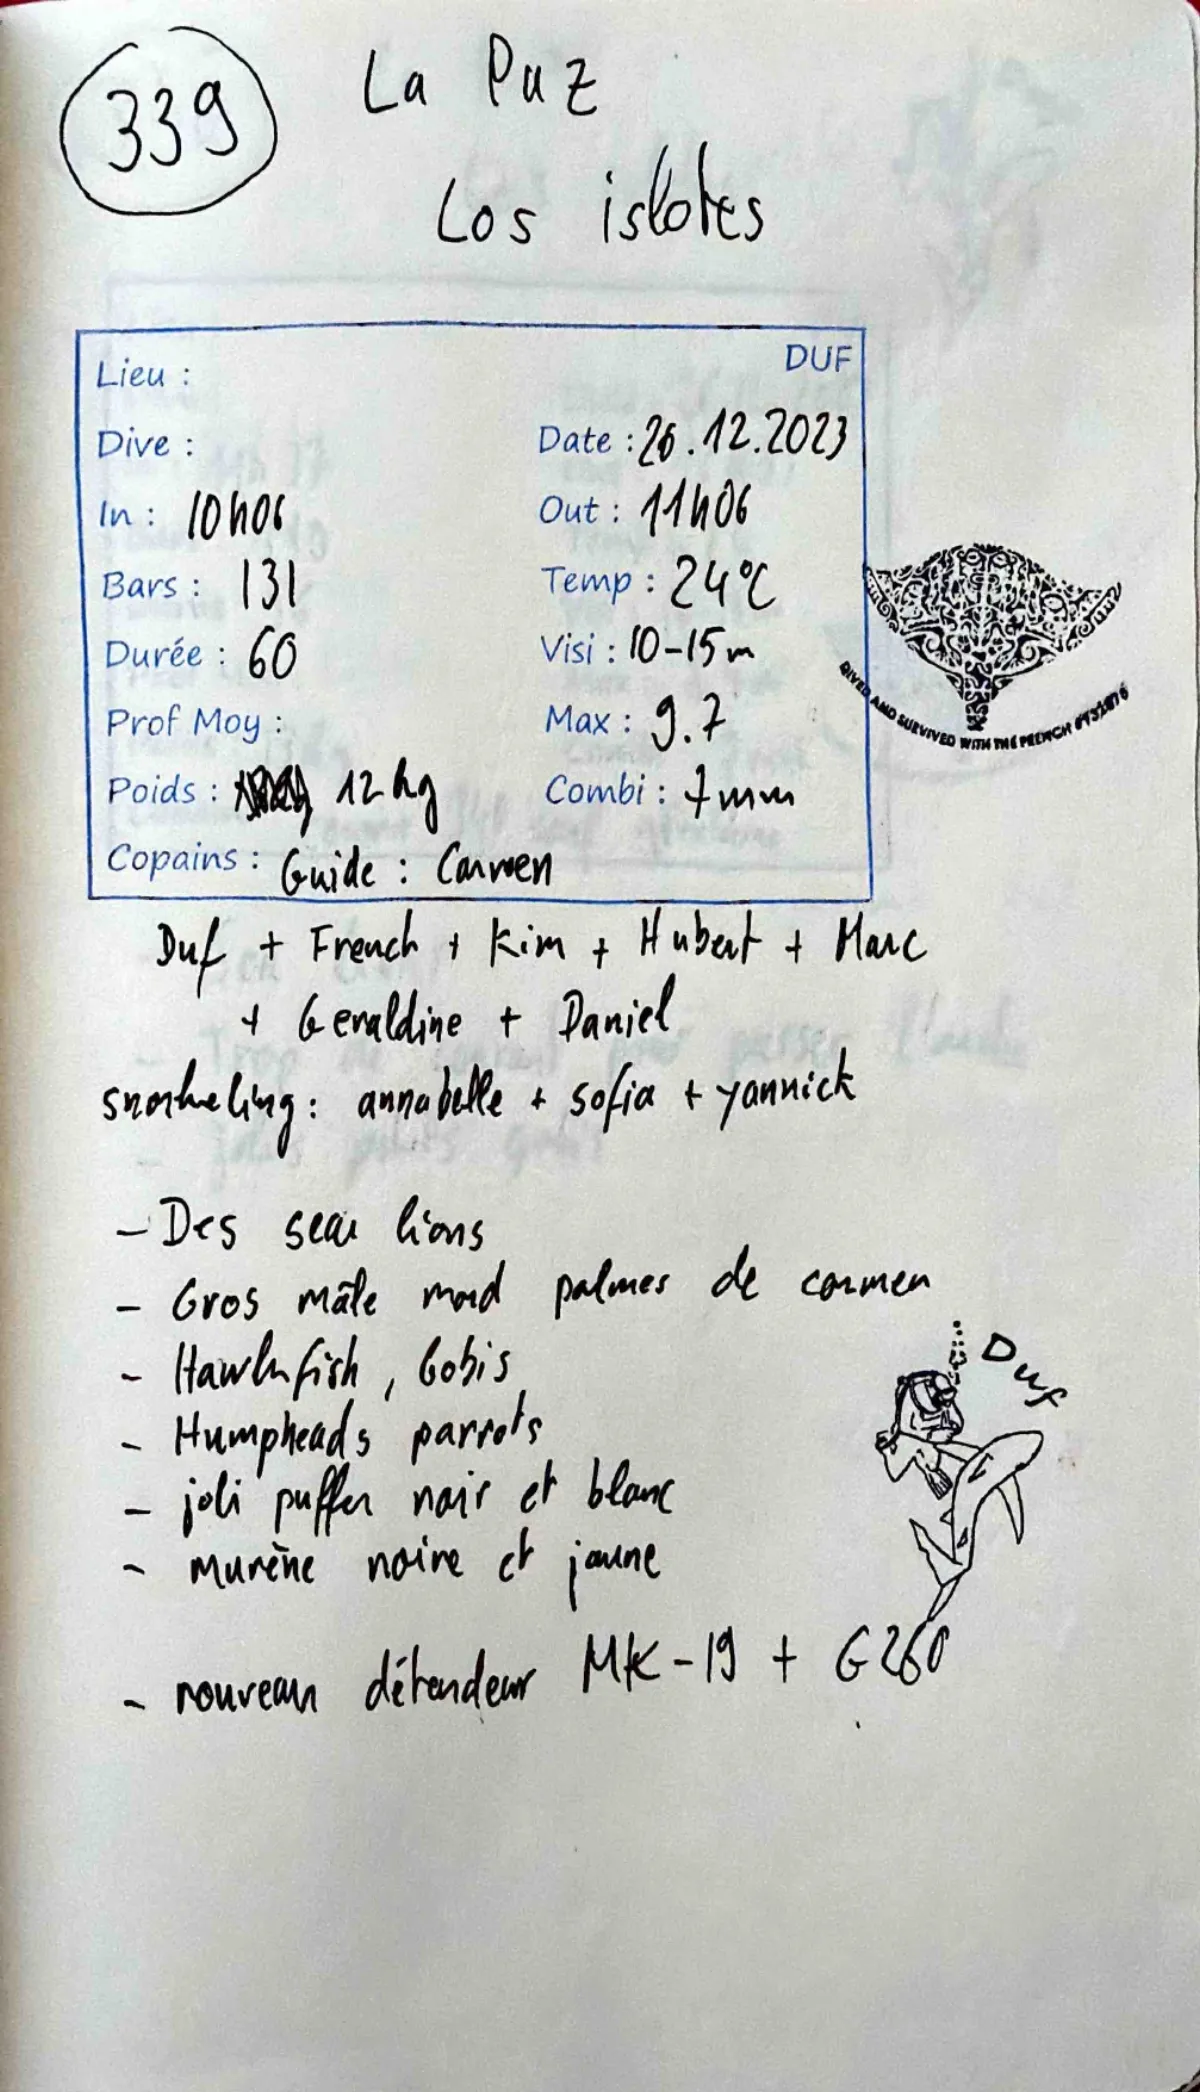 339
La Paz
Los islotes
DUF
Lieu :
Dive :
Date : 26.12.2023
In : 10h06
Out : 11h06
Bars : 131
Temp : 24°C
Durée : 60
Visi : 10-15m
Prof Moy :
Max : 9.7
Poids : 12kg
Combi : 7mm
Copains : Guide : Carmen
DIVED AND SURVIVED WITH THE FRENCH
Duf + French + Kim + Hubert + Marc
+ Geraldine + Daniel
snorkeling : annabelle + sofia + yannick
- Des sea lions
- Gros mâle mord palmes de carmen
- Hawkfish, Gobis
- Humpheads parrots
- joli puffer noir et blanc
- murène noire et jaune
Duf
- nouveau détendeur MK-19 + G260